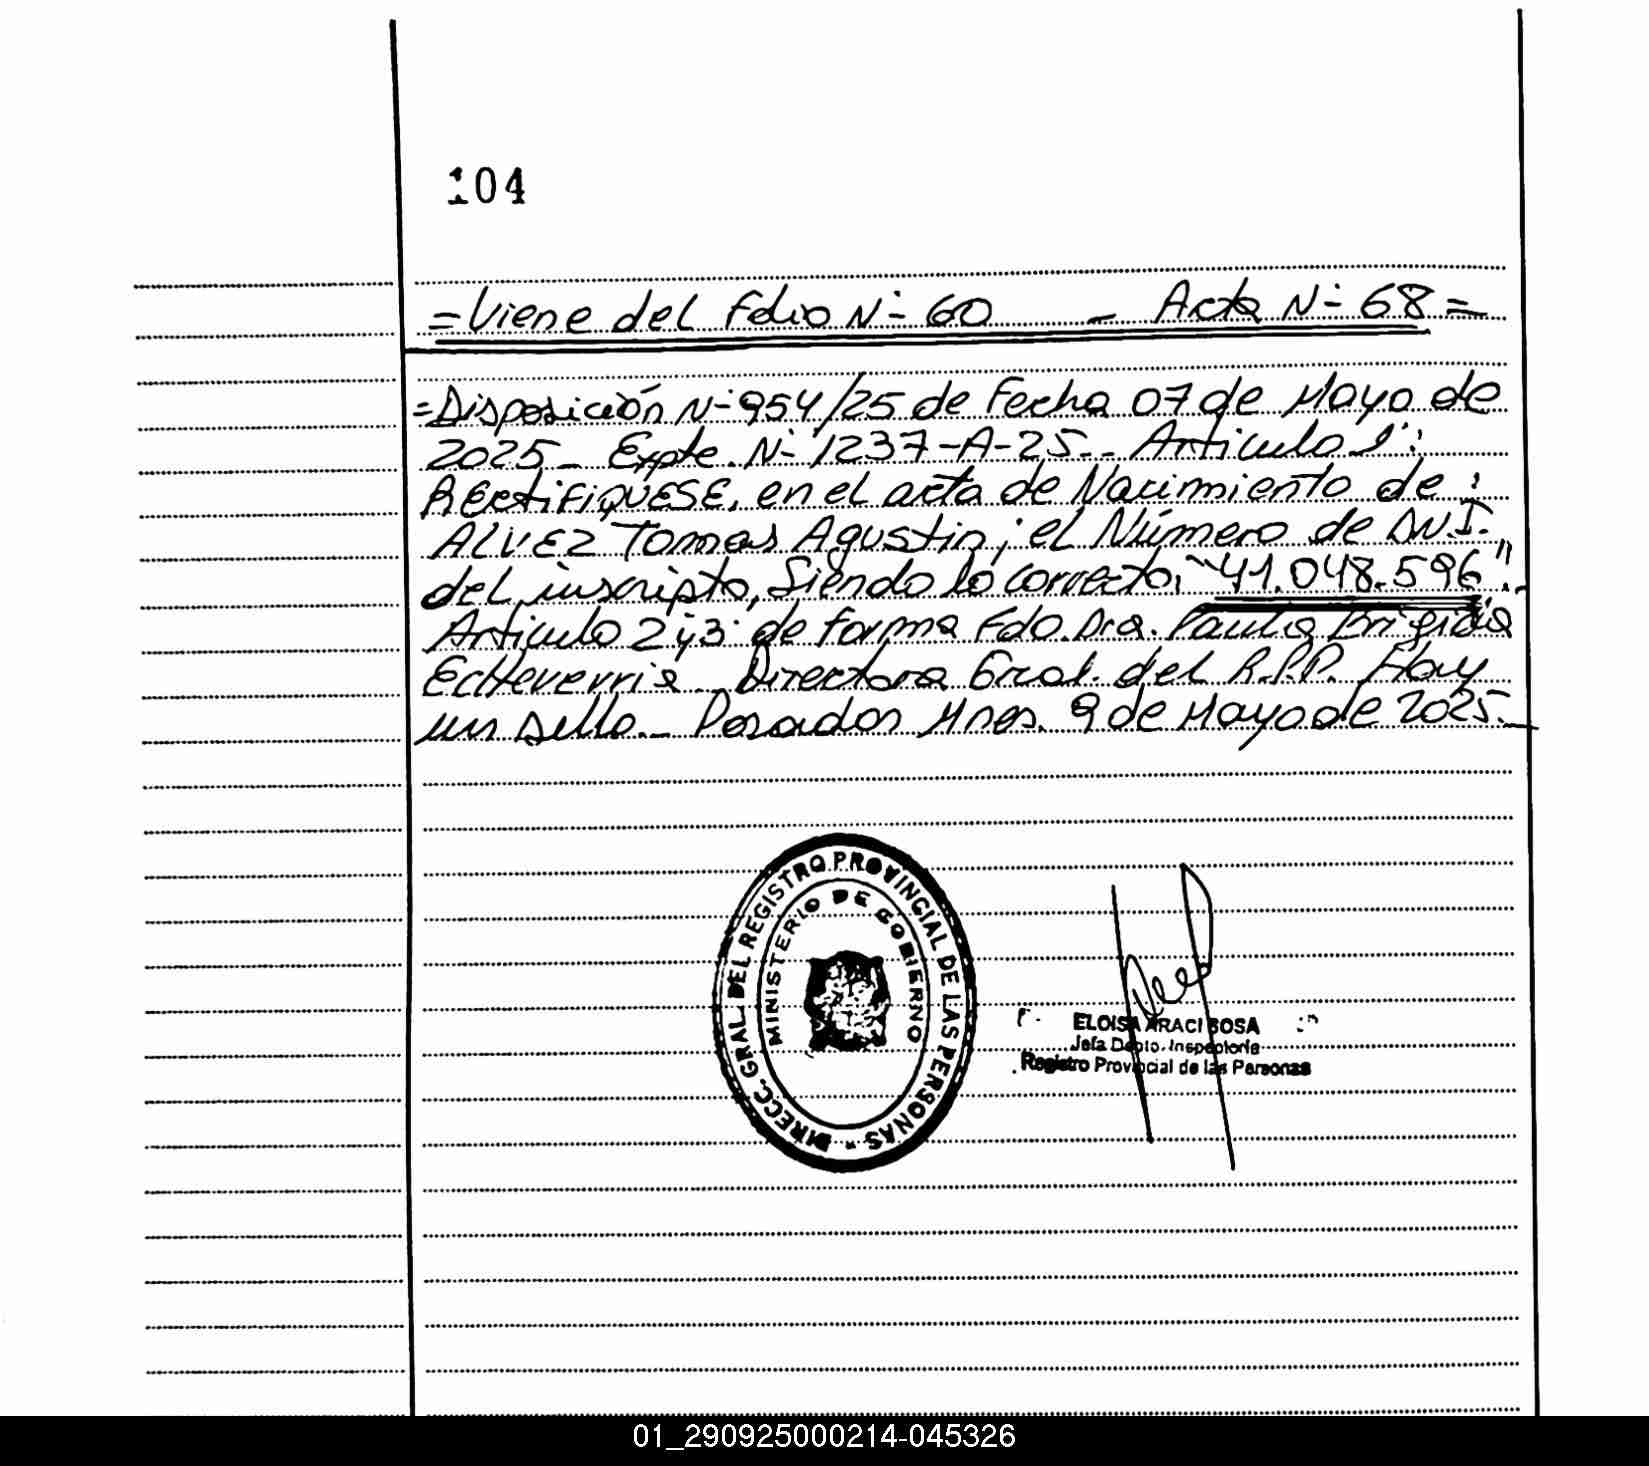 104
=Viene del Folio N- 60 - Acta N- 68=
=Disposición N-954/25 de Fecha 07 de Mayo de
2025- Expte. N- 1237-A-25.- Articulo 1°:
RECtiFiQUESE, en el acta de Nacimiento de:
ALVEZ Tomas Agustin; el Número de D.N.I.
del inscripto, Siendo lo correcto, "41.048.596".-
Articulo 2 y 3 de forma Fdo. Dra. Paula Brigida
Echeverria Directora Gral. del R.P.P. Hay
un sello.- Posadas Mnes. 9 de Mayo de 2025.-
DIRECC. GRAL. DEL REGISTRO PROVINCIAL DE LAS PERSONAS
MINISTERIO DE GOBIERNO
ELOISA ARACI SOSA
Jefa Depto. Inspectoria
Registro Provincial de las Personas
01_290925000214-045326